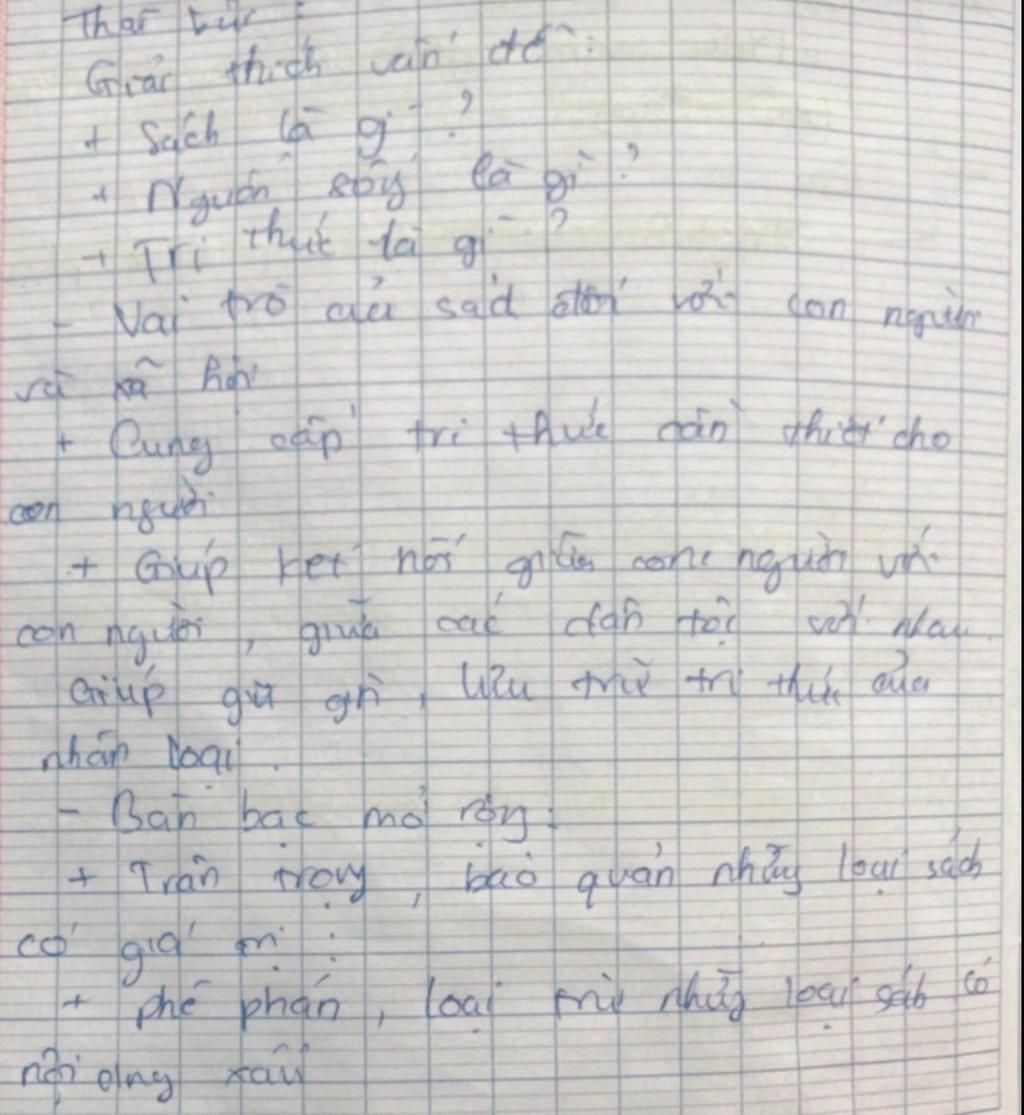 Giải thích vấn đề:
+ Sách là gì ?
+ Nguồn sống là gì ?
+ Tri thức là gì ?
- Vai trò của sách đối với con người
và xã hội
+ Cung cấp tri thức cần thiết cho
con người
+ Giúp kết nối giữa con người với
con người, giữa các dân tộc với nhau.
Giúp giữ gìn, lưu trữ tri thức của
nhân loại.
- Bàn bạc mở rộng:
+ Trân trọng, bảo quản những loại sách
có giá trị :
+ phê phán, loại trừ những loại sách có
nội dung xấu